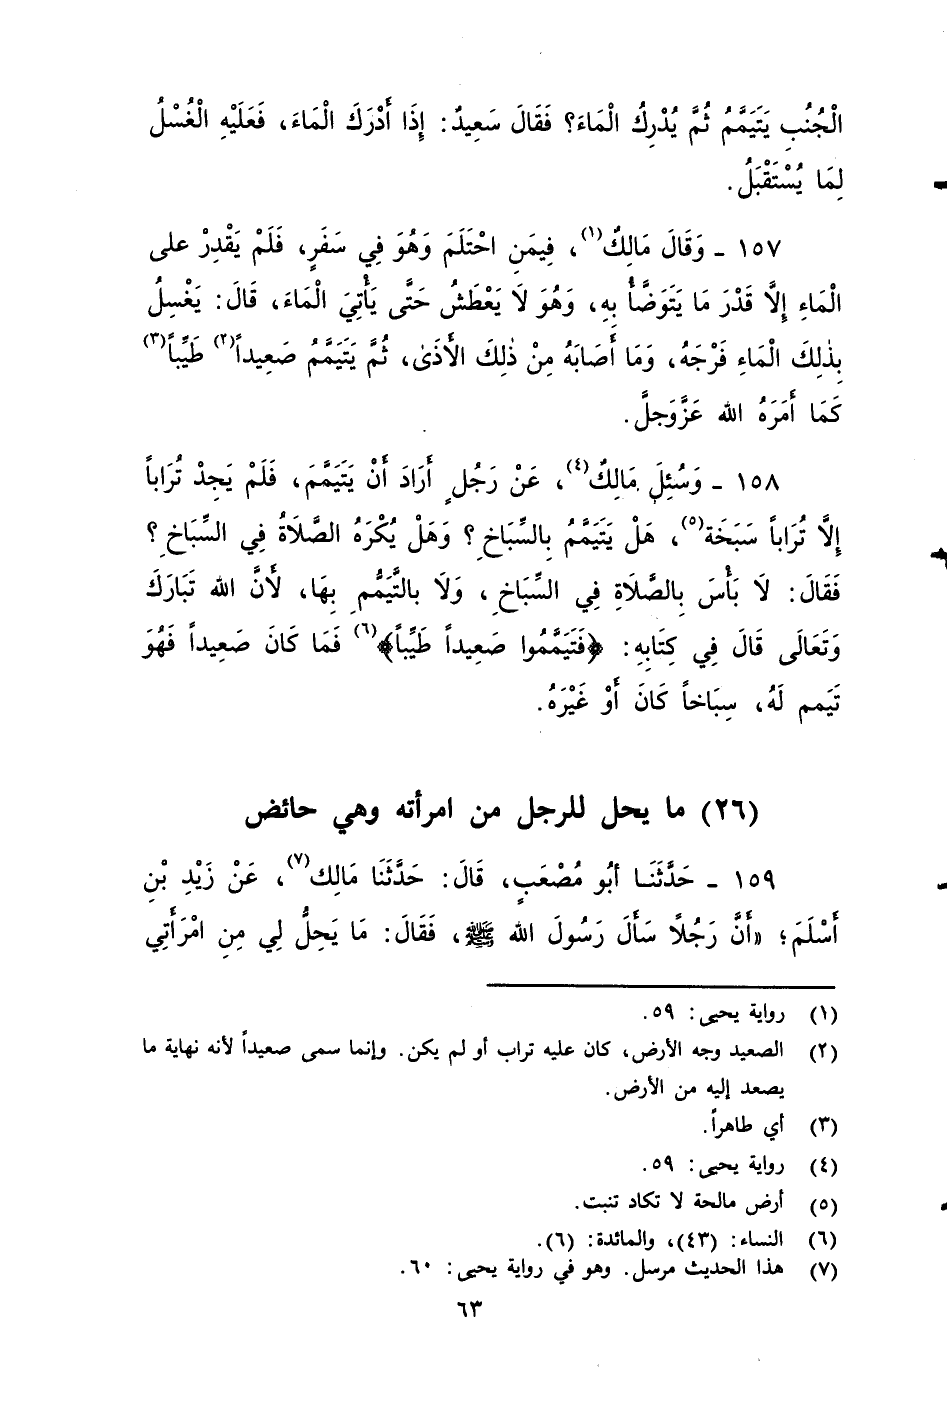 الْجُنُبِ يَتَيَمَّمُ ثُمَّ يُدْرِكُ الْمَاءَ؟ فَقَالَ سَعِيدٌ: إِذَا أَدْرَكَ الْمَاءَ، فَعَلَيْهِ الْغُسْلُ
لِمَا يُسْتَقْبَلُ.
١٥٧ ـ وَقَالَ مَالِكٌ(١)، فِيمَنِ احْتَلَمَ وَهُوَ فِي سَفَرٍ، فَلَمْ يَقْدِرْ على
الْمَاءِ إِلَّا قَدْرَ مَا يَتَوَضَّأُ بِهِ، وَهُوَ لَا يَعْطَشُ حَتَّى يَأْتِيَ الْمَاءَ، قَالَ: يَغْسِلُ
بِذٰلِكَ الْمَاءِ فَرْجَهُ، وَمَا أَصَابَهُ مِنْ ذٰلِكَ الأَذَىٰ، ثُمَّ يَتَيَمَّمُ صَعِيداً(٢) طَيِّباً(٣)
كَمَا أَمَرَهُ الله عَزَّوَجلَّ.
١٥٨ ـ وَسُئِلَ مَالِكٌ(٤)، عَنْ رَجُلٍ أَرَادَ أَنْ يَتَيَمَّمَ، فَلَمْ يَجِدْ تُرَاباً
إِلَّا تُرَاباً سَبَخَة(٥)، هَلْ يَتَيَمَّمُ بِالسِّبَاخِ؟ وَهَلْ يُكْرَهُ الصَّلَاةُ فِي السِّبَاخِ؟
فَقَالَ: لَا بَأْسَ بِالصَّلَاةِ فِي السِّبَاخِ، وَلَا بالتَّيَمُّمِ بِهَا، لَأَنَّ الله تَبَارَكَ
وَتَعَالَى قَالَ فِي كِتَابِهِ: ﴿فَتَيَمَّمُوا صَعِيداً طَيِّباً﴾(٦) فَمَا كَانَ صَعِيداً فَهُوَ
تَيَمم لَهُ، سِبَاخاً كَانَ أَوْ غَيْرَهُ.
(٢٦) ما يحل للرجل من امرأته وهي حائض
١٥٩ ـ حَدَّثَنَا أبُو مُصْعَبٍ، قَالَ: حَدَّثَنَا مَالِك(٧)، عَنْ زَيْدِ بْنِ
أَسْلَمَ؛ «أَنَّ رَجُلًا سَأَلَ رَسُولَ الله ﷺ، فَقَالَ: مَا يَحِلُّ لِي مِنِ امْرَأَتِي
(١) رواية يحيى: ٥٩.
(٢) الصعيد وجه الأرض، كان عليه تراب أو لم يكن. وإنما سمى صعيداً لأنه نهاية ما
يصعد إليه من الأرض.
(٣) أي طاهراً.
(٤) رواية يحيى: ٥٩.
(٥) أرض مالحة لا تكاد تنبت.
(٦) النساء: (٤٣)، والمائدة: (٦).
(٧) هذا الحديث مرسل. وهو في رواية يحيى: ٦٠.
٦٣